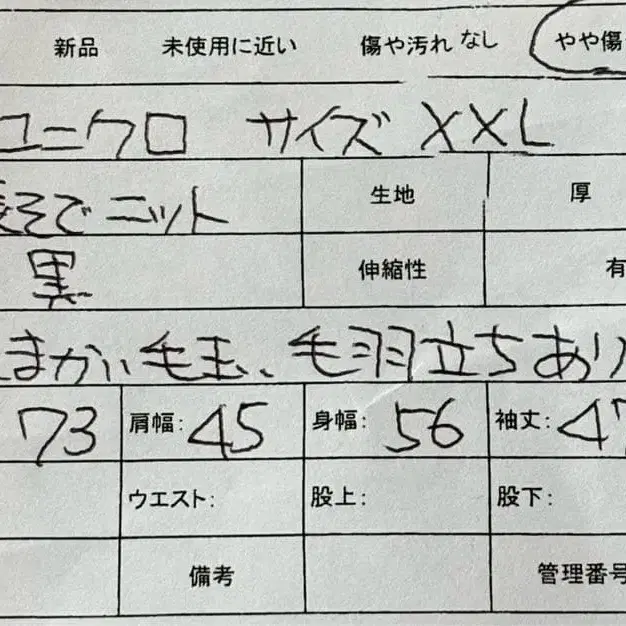 新品 未使用に近い 傷や汚れなし やや傷
ユニクロ サイズ XXL
長そでニット 生地 厚
黒 伸縮性 有
こまかい毛玉、毛羽立ちあり
73 肩幅: 45 身幅: 56 袖丈: 47
ウエスト: 股上: 股下:
備考 管理番号